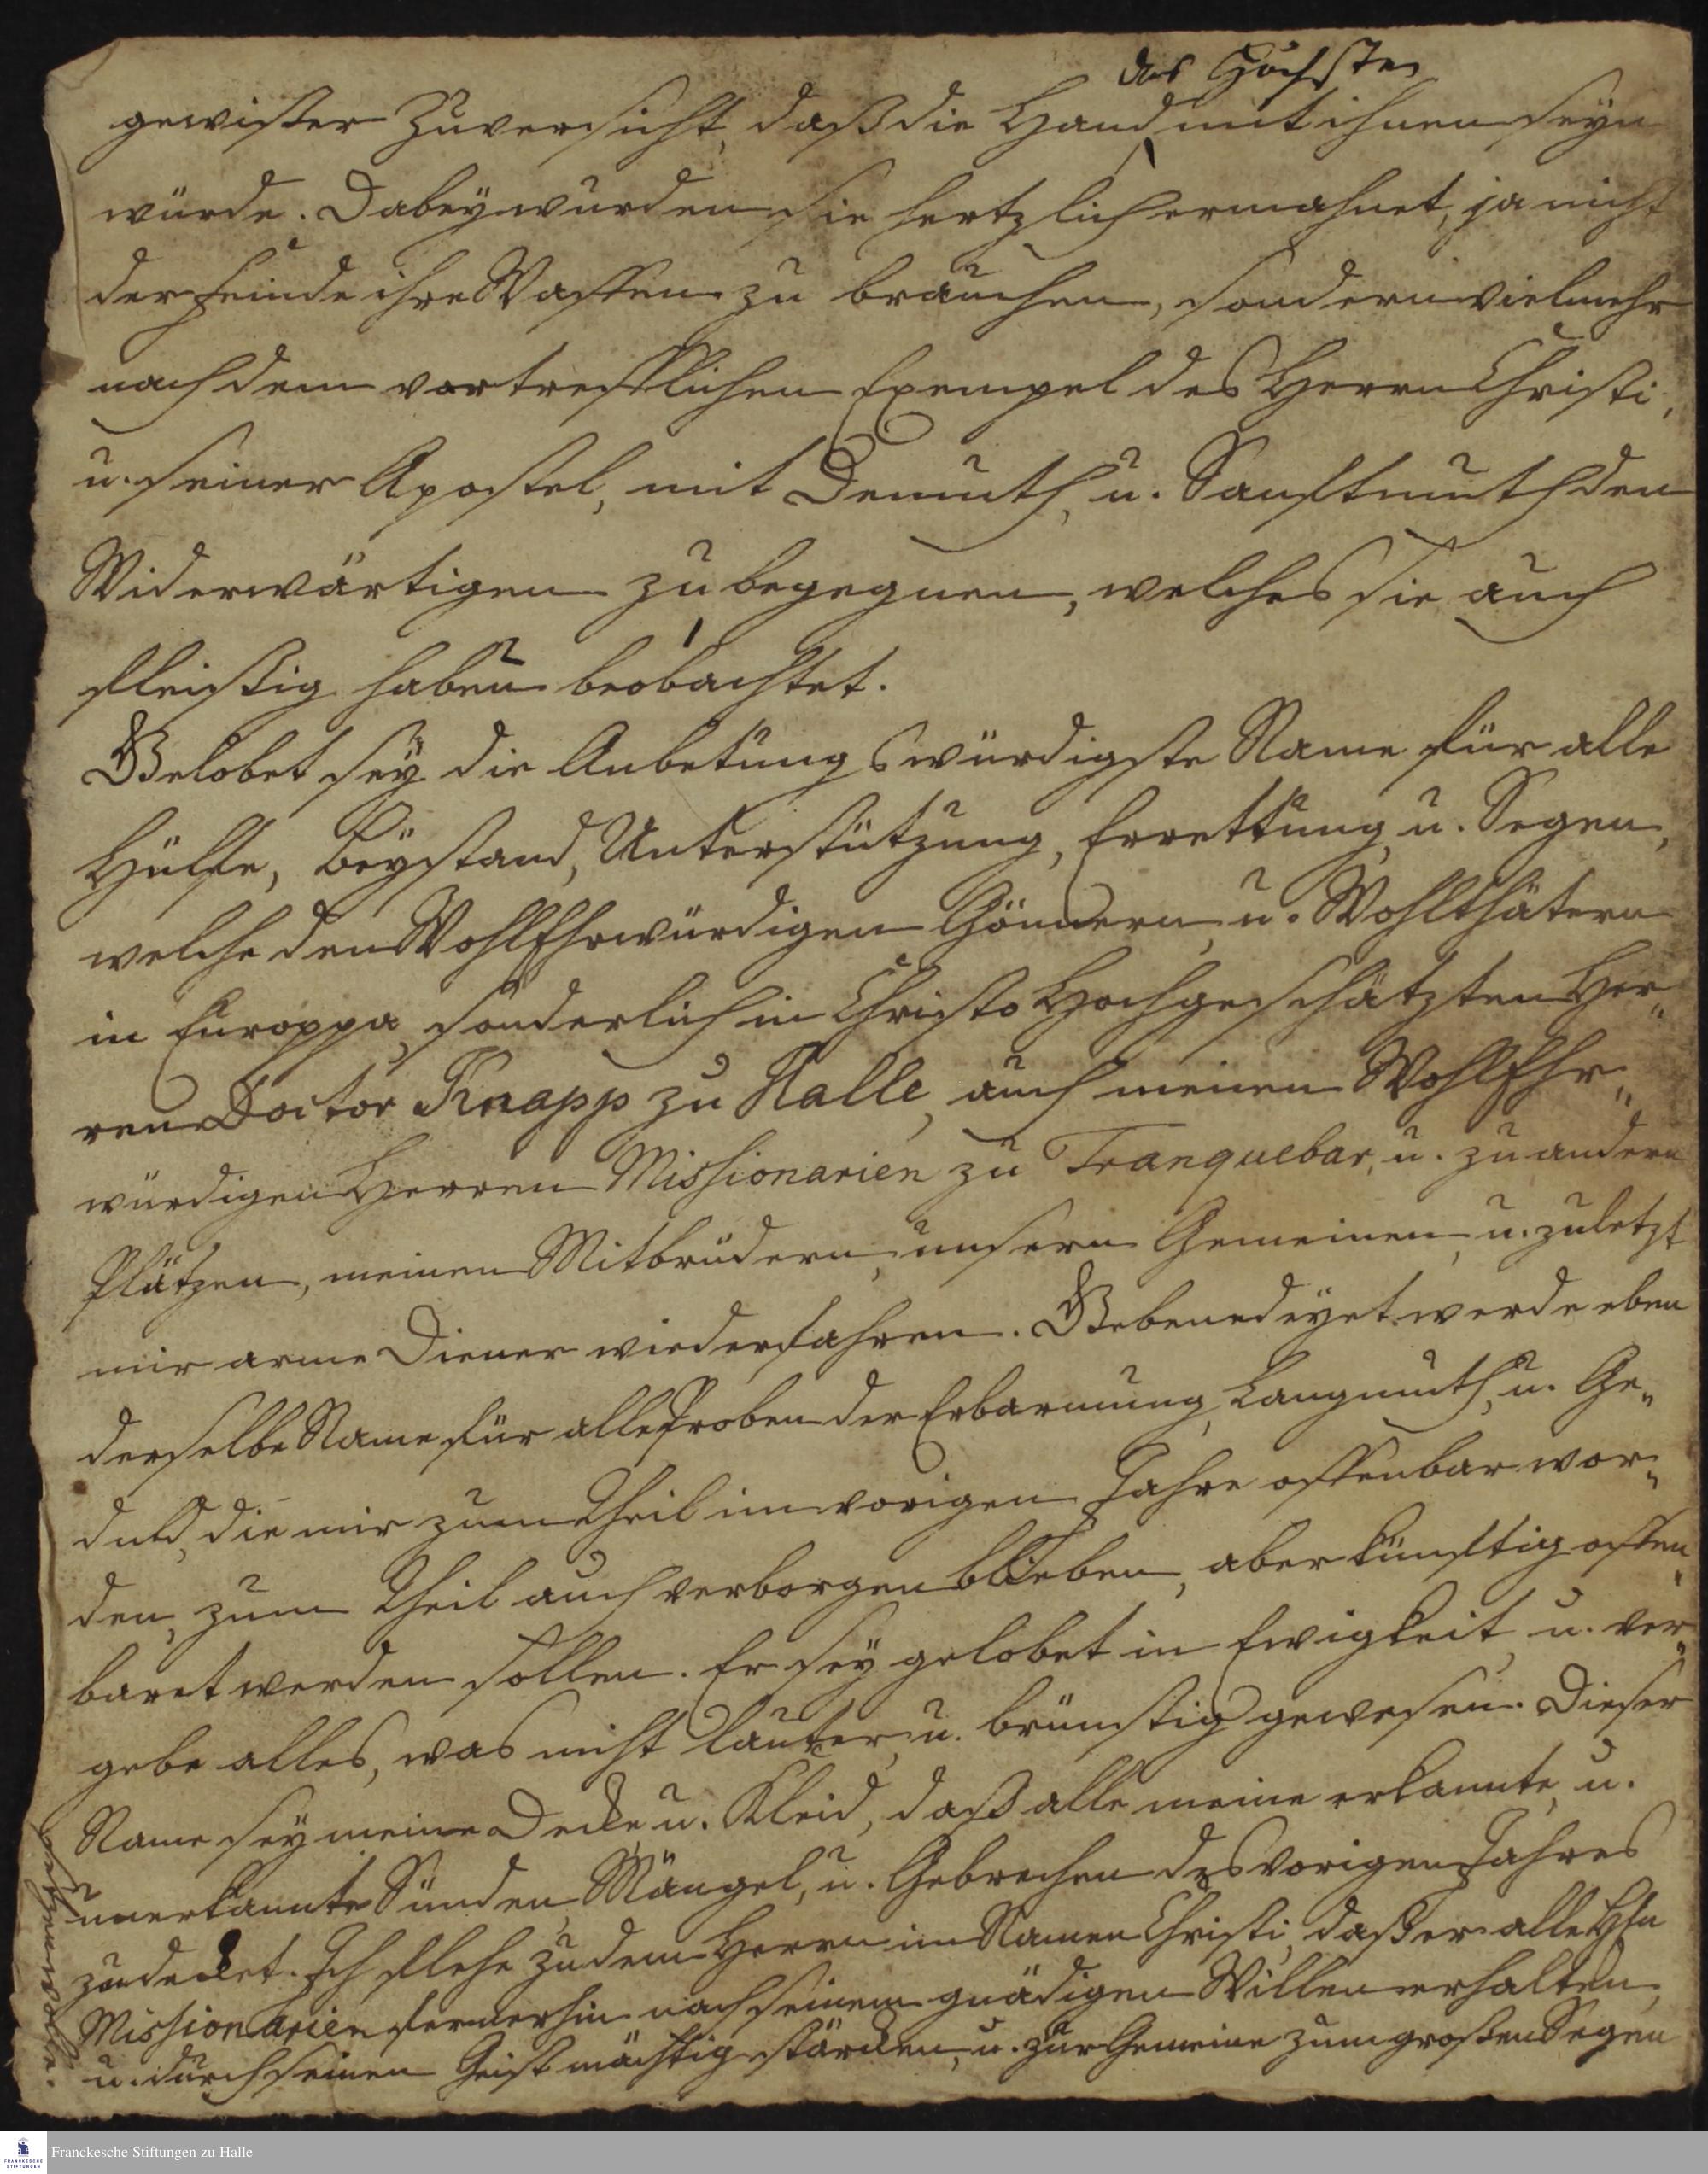 des Höchsten
gewisser Zuversicht, daß die Hand mit ihnen seyn
würde. Dabey wurden sie hertzlich ermahnet, ja nicht
der Feinde ihre Waffen zu brauchen, sondern vielmehr
nach dem vortrefflichen Exempel des Herrn Christi,
u. seiner Apostel, mit Demuth, u. Sanftmuth den
Widerwärtigen zu begegnen, welches sie auch
fleissig haben beobachtet.
Gelobet sey die Anbetungswürdigste Name für alle
Hülfe, Beystand, Unterstützung, Errettung, u. Segen,
welche den WohlEhrwürdigen Gönnern, u. Wohlthätern
in Europpa, sonderlich in Christo Hochgeschätzten Her„
ren Doctor Knapp zu Halle, auch meinen WohlEhr„
würdigen Herren Missionarien zu Tranquebar, u. zu andern
Plätzen, meinen Mitbrüdern, unsern Gemeinen, u. zuletzt
mir arme Diener wiederfahren. Gebenedeyet werde eben
derselbe Name für alle Proben der Erbarmung, Langmuth, u. Ge„
duld, die mir zum Theil im vorigen Jahre offenbar wor„
den, zum Theil auch verborgen blieben, aber künftig offen„
baret werden sollen. Er sey gelobet in Ewigkeit, u. ver„
gebe alles, was nicht lauter, u. brünstig gewesen. Dieser
Name sey meine Decke u. Kleid, daß alle meine erkannte, u.
unerkannte Sünden, Mängel, u. Gebrechen des vorigen Jahres
zudecket. Ich flehe zu dem Herrn im Namen Christi, daß er alle HEn
Missionarien fernerhin nach seinem gnädigen Willen erhalten,
u. durch seinen Geist mächtig stärcken, u. zur Gemeine zum grossen Segen
setzen wolle.
Franckesche Stiftungen zu Halle
FRANCKESCHE STIFTUNGEN